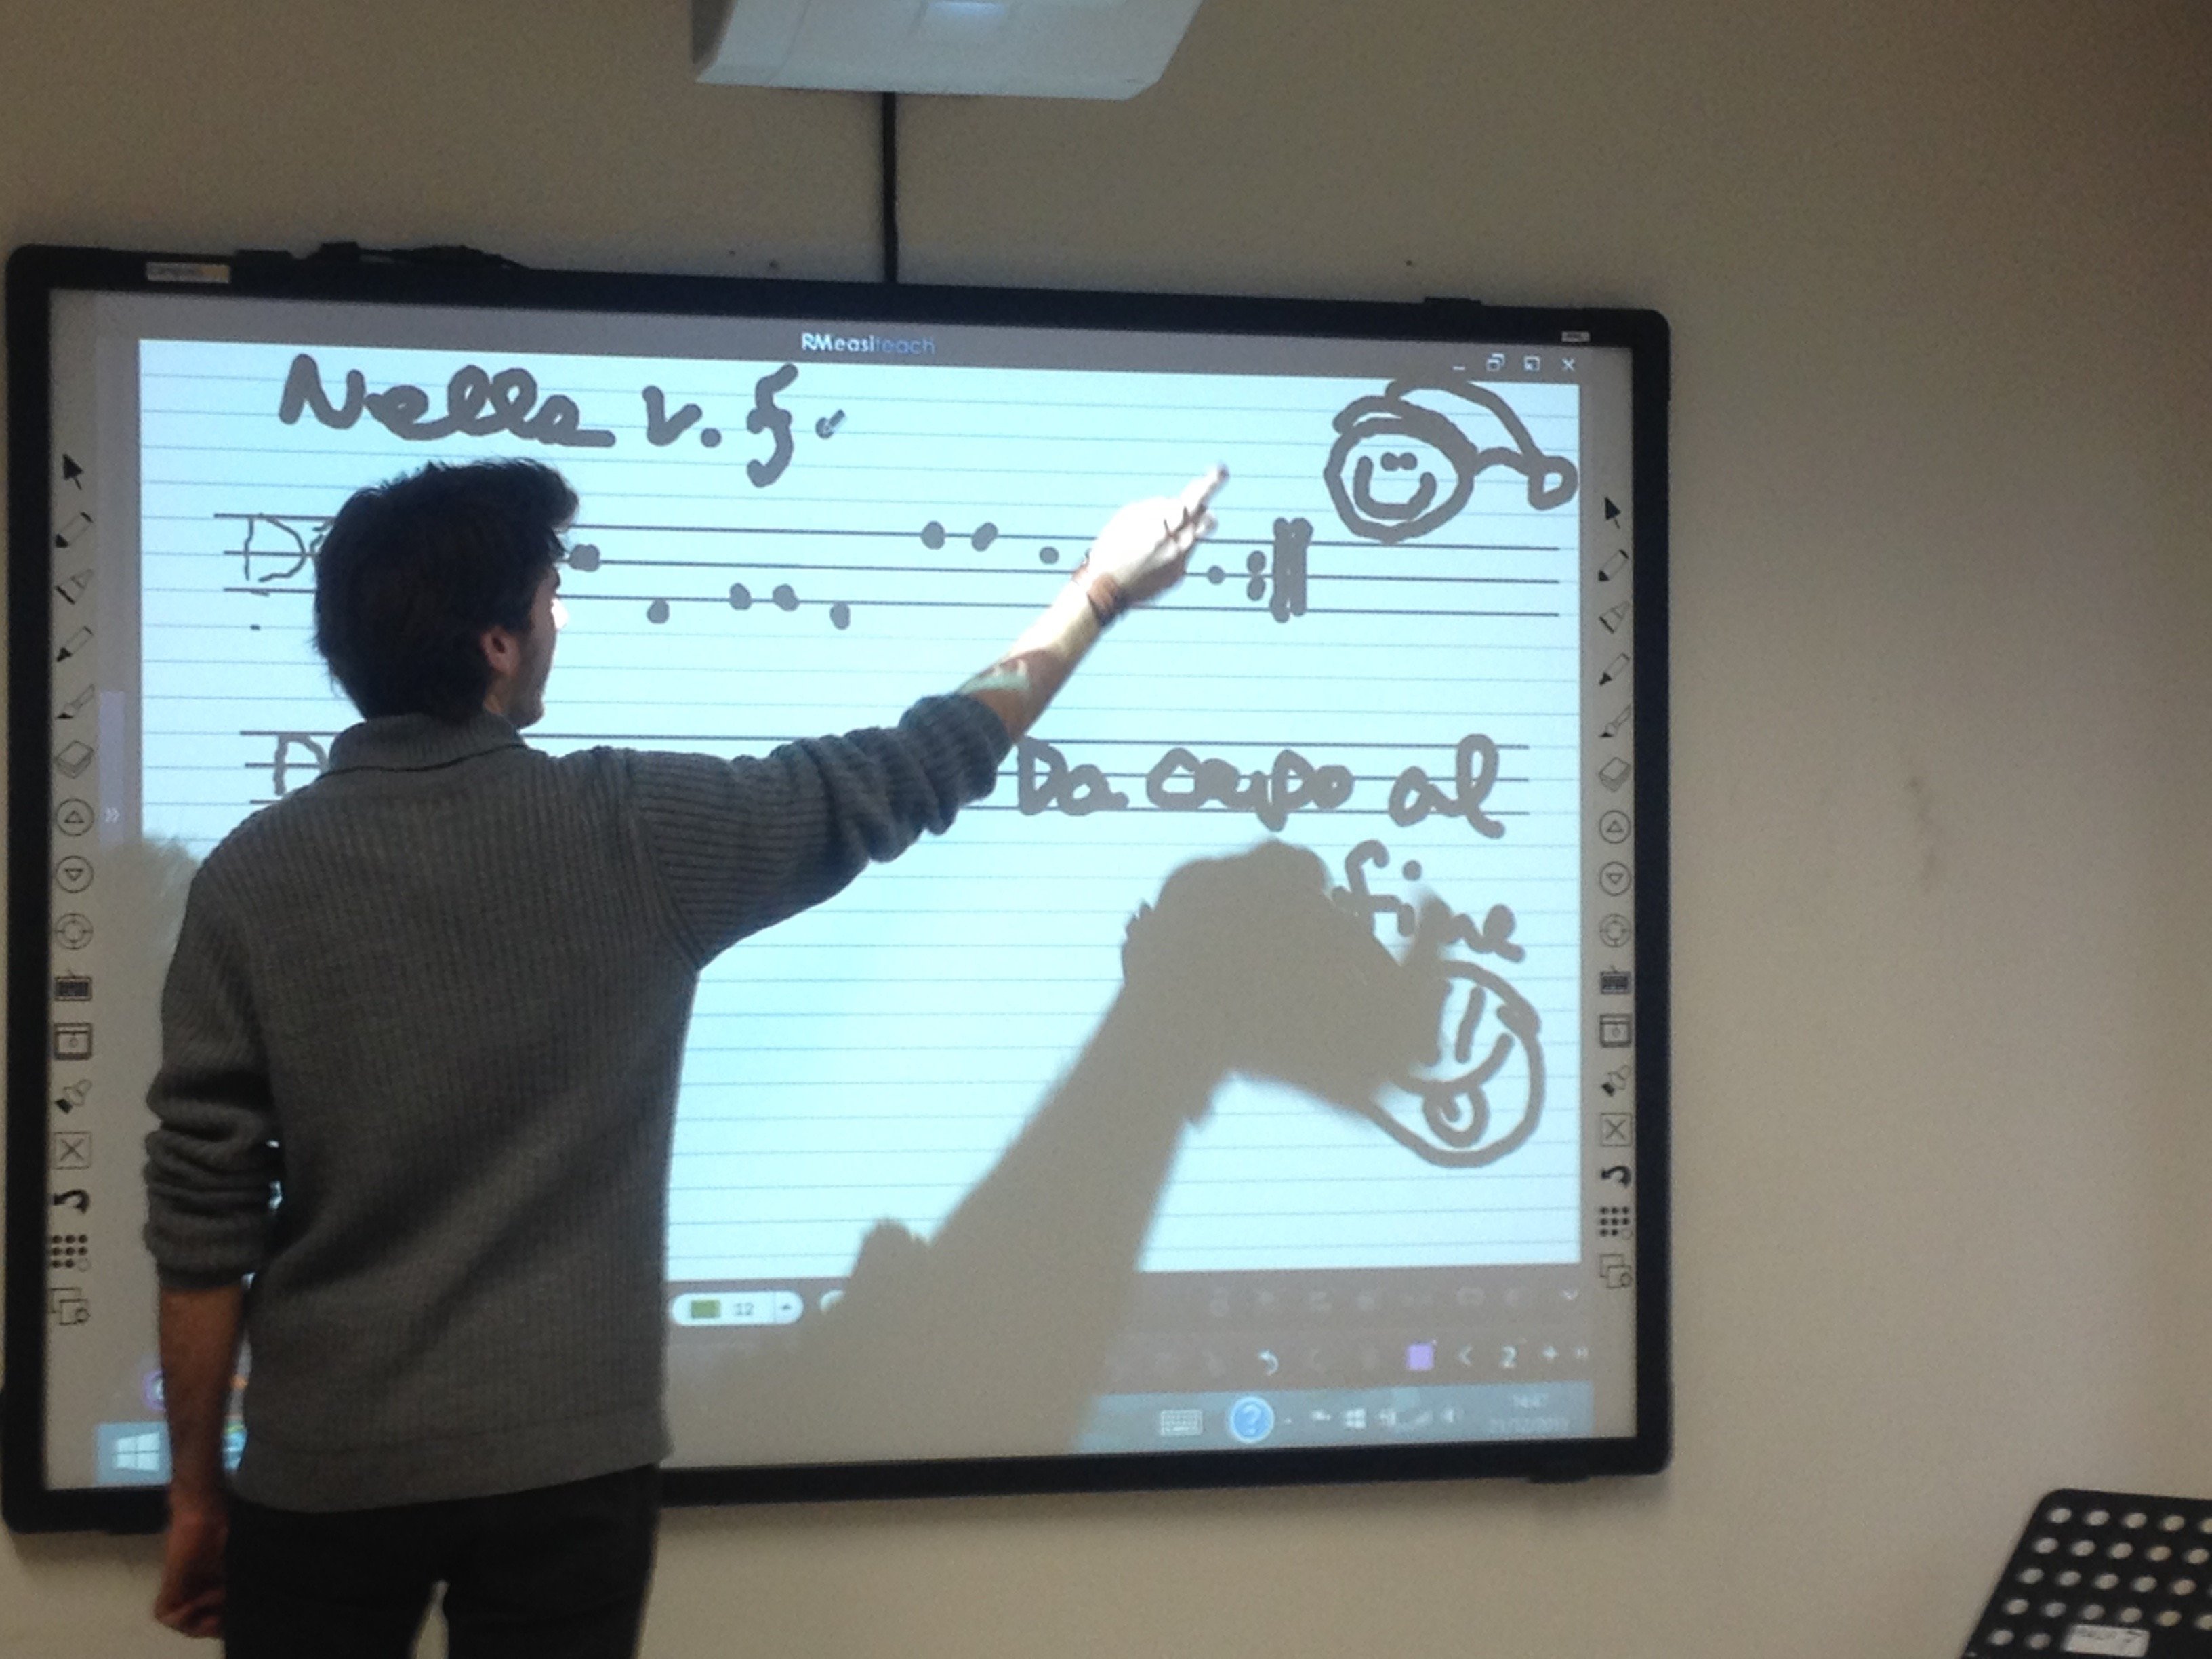 RMeasiteach
Nella v. f
Da capo al
fine
12
2